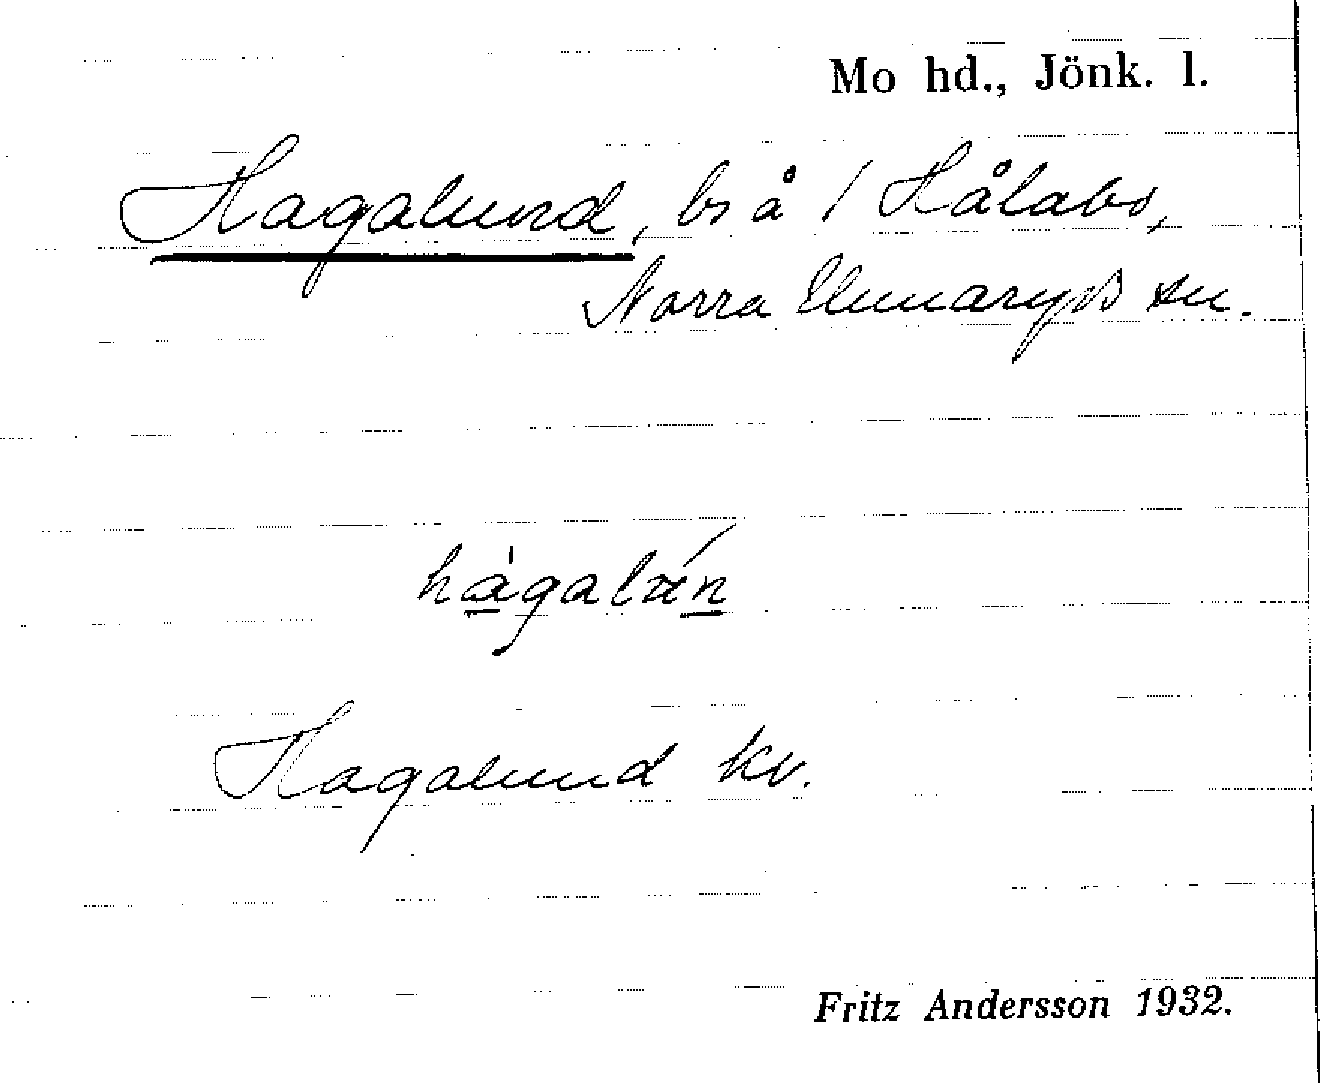 Mo hd., Jönk. l.
Hagalund, bs å 1 Hålabo,
Norra Unnaryds sn.
hágalún
Hagalund kv.
Fritz Andersson 1932.